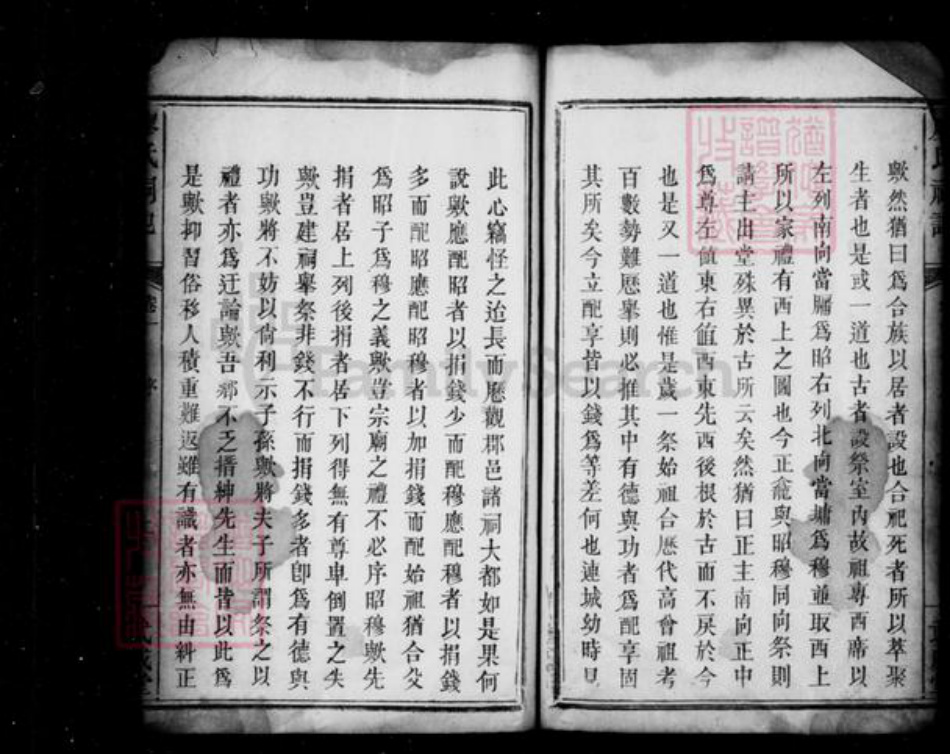 歟然猶曰爲合族以居者設也合祀死者所以萃聚
生者也是或一道也古者設祭室內故祖專西席以
左列南向當牖爲昭右列北向當墉爲穆並取西上
所以家禮有西上之圖也今正龕與昭穆同向祭則
請主出堂殊異於古所云矣然猶曰正主南向正中
爲尊左值東右值西東先西後根於古而不戾於今
也是又一道也惟是歲一祭始祖合歷代高曾祖考
百數勢難歷舉則必推其中有德與功者爲配享固
其所矣今立配享皆以錢爲等差何也連城幼時見
此心竊怪之迨長而歷觀郡邑諸祠大都如是果何
說歟應配昭者以捐錢少而配穆應配穆者以捐錢
多而配昭應配昭穆者以加捐錢而配始祖猶合父
爲昭子爲穆之義歟豈宗廟之禮不必序昭穆歟先
捐者居上列後捐者居下列得無有尊卑倒置之失
歟豈建祠舉祭非錢不行而捐錢多者卽爲有德與
功歟將不妨以尙利示子孫歟將夫子所謂祭之以
禮者亦爲迂論歟吾郷不乏搢紳先生而皆以此爲
是歟抑習俗移人積重難返雖有識者亦無由糾正
氏祠記
卷一
序
FamilySearch